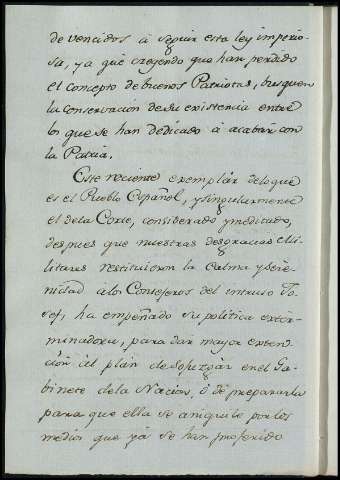 de vencidos á seguir esta ley imperio-
sa, ya que creyendo que han perdido
el concepto de buenos Patriotas, busquen
la conservación de su existencia entre
los que se han dedicado á acabar con
la Patria.
Este reciente exemplar de lo que
es el Pueblo Español, y singularmente
el de la Corte, considerado y meditado,
despues que nuestras desgracias Mi-
litares restituieron la calma y sere-
nidad a los Consejeros del intruso Jo-
sef, ha empeñado su politica exter-
minadora, para dar mayor exten-
ción al plan de sojuzgar en el Ga-
binete de la Nacion, ó de prepararla
para que ella se aniquile por los
medios que yá se han proferido